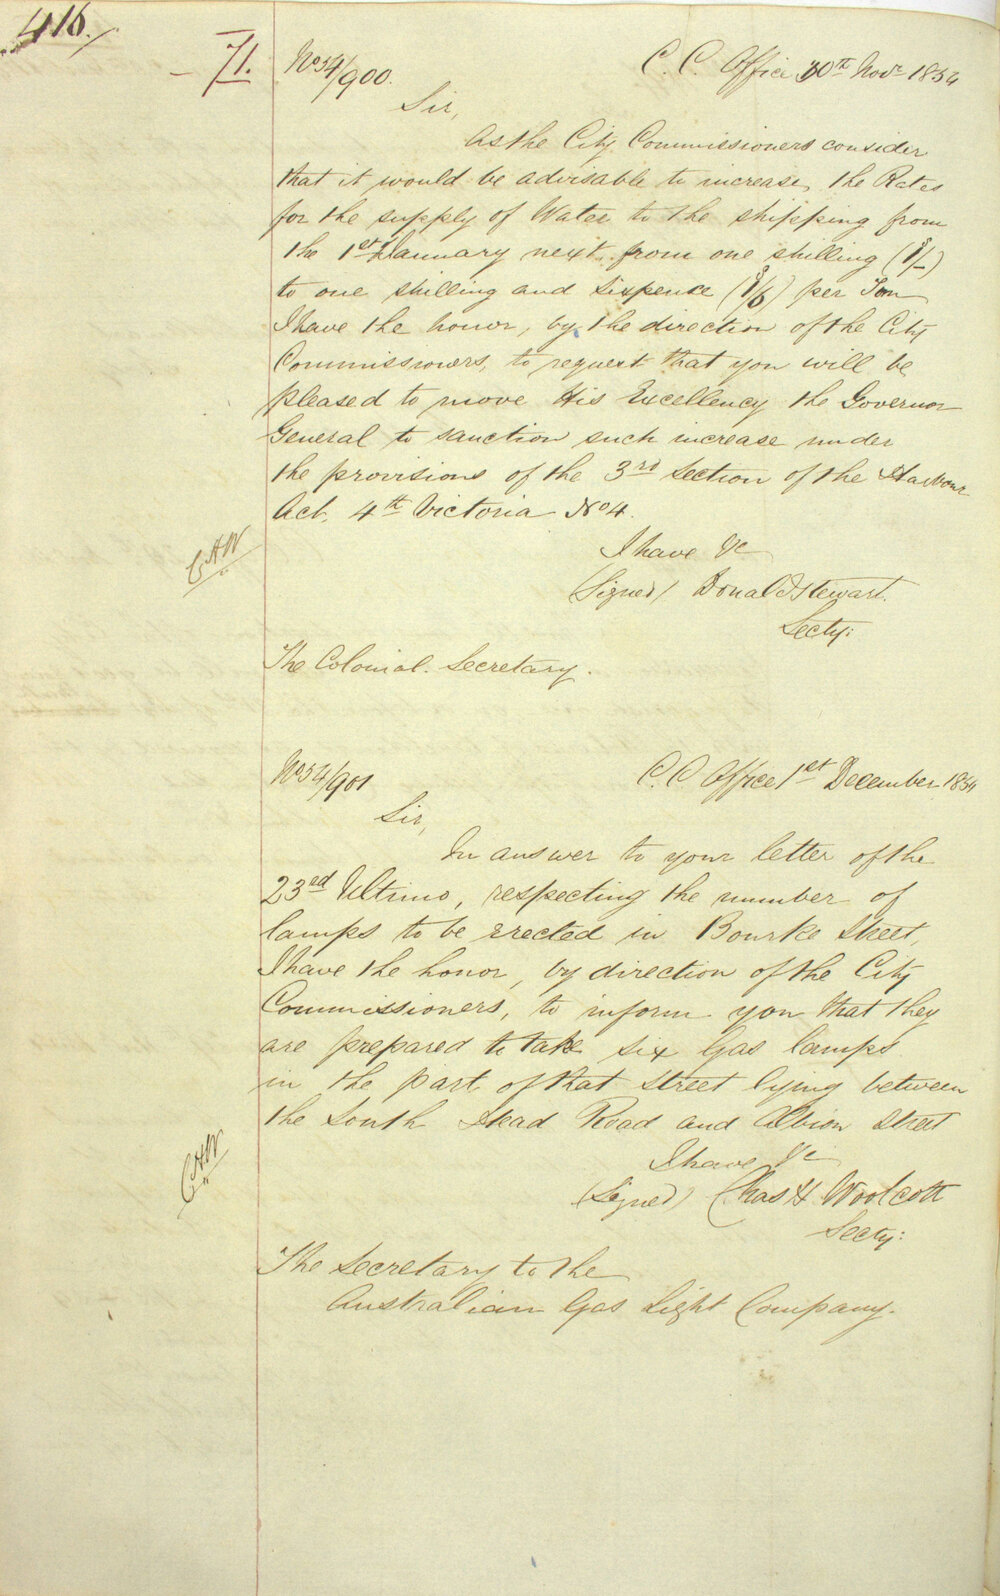 416.
71.
No 54/900. C. C. Office 30th Novr 1854
Sir,
As the City Commissioners consider
that it would be advisable to increase, the Rates
for the supply of Water to the shipping from
the 1st January next from one shilling (1/-)
to one shilling and sixpence (1/6) per Ton
I have the honor, by the direction of the City
Commissioners, to request that you will be
pleased to move His Excellency the Governor
General to sanction such increase under
the provisions of the 3rd Section of the Harbour
Act, 4th Victoria No 4.
CHW
I have &c
(Signed) Donald Stewart.
Secty:
The Colonial Secretary.
No 54/901 C. C Office 1st December 1854
Sir,
In answer to your letter of the
23rd Ultimo, respecting the number of
lamps to be erected in Bourke Street,
I have the honor, by direction of the City
Commissioners, to inform you that they
are prepared to take six Gas lamps
in the part of that street lying between
the South Head Road and Albion Street
CHW
I have &c
(Signed) Chas H Woolcott
Secty:
The Secretary to the
Australian Gas Light Company.